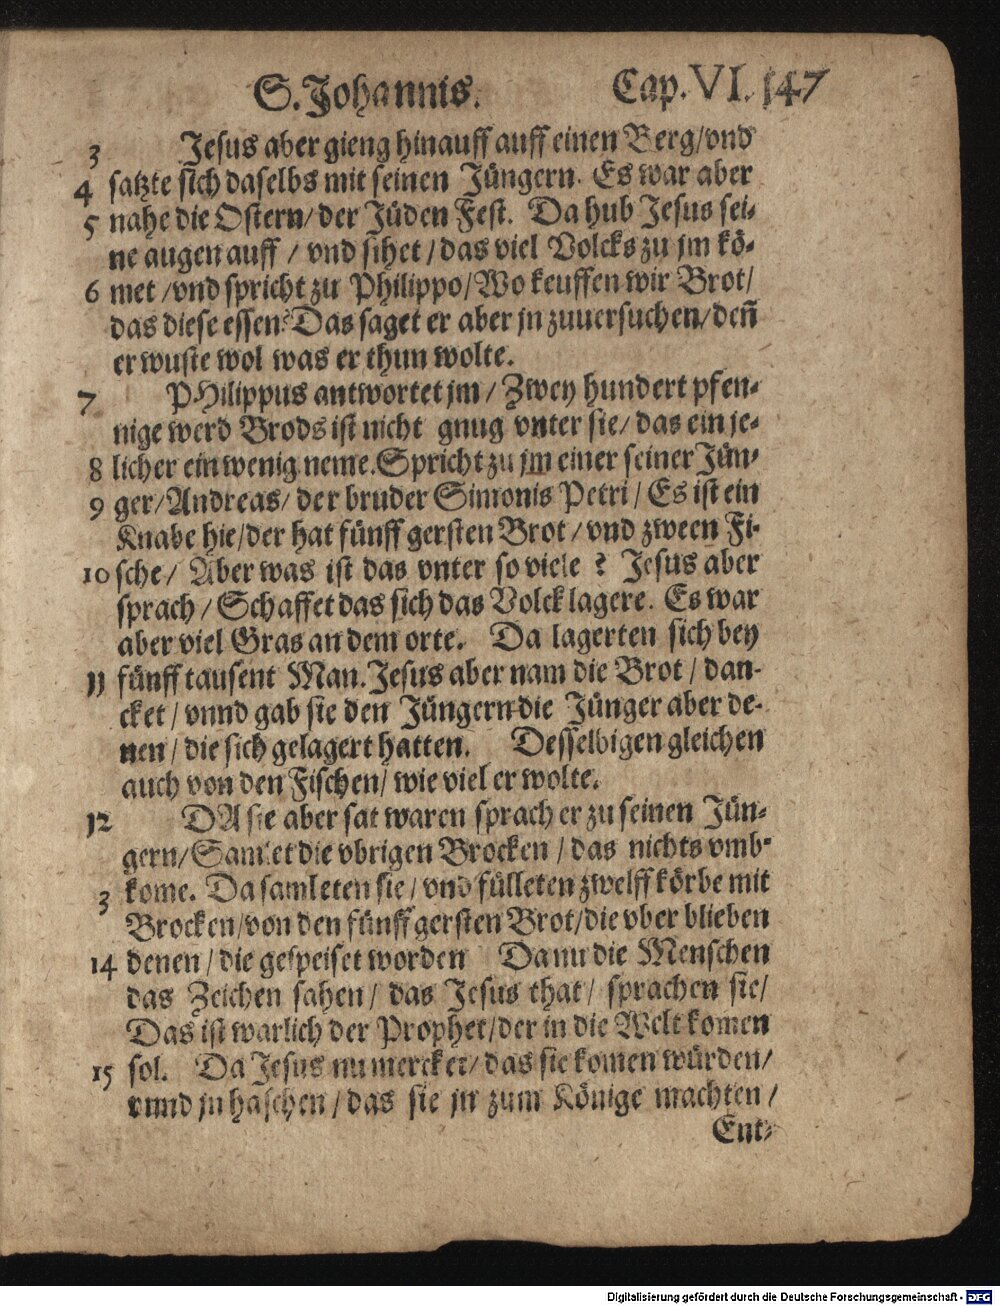 S. Johannis. Cap. VI. 147
3 Jesus aber gieng hinauff auff einen Berg/vnd
4 satzte sich daselbs mit seinen Jüngern. Es war aber
5 nahe die Ostern/ der Jüden Fest. Da hub Jesus sei-
ne augen auff / vnd sihet / das viel Volcks zu jm kö-
6 met /vnd spricht zu Philippo/ Wo keuffen wir Brot/
das diese essen? Das saget er aber jn zuuersuchen/ deñ
er wuste wol was er thun wolte.
7 PHilippus antwortet jm / Zwey hundert pfen-
nige werd Brods ist nicht gnug vnter sie/ das ein je-
8 licher ein wenig neme. Spricht zu jm einer seiner Jün-
9 ger/ Andreas/ der bruder Simonis Petri / Es ist ein
Knabe hie/ der hat fünff gersten Brot / vnd zween Fi-
10 sche/ Aber was ist das vnter so viele ? Jesus aber
sprach / Schaffet das sich das Volck lagere. Es war
aber viel Gras an dem orte. Da lagerten sich bey
11 fünff tausent Man. Jesus aber nam die Brot / dan-
cket / vnnd gab sie den Jüngern die Jünger aber de-
nen / die sich gelagert hatten. Desselbigen gleichen
auch von den Fischen/ wie viel er wolte.
12 DA sie aber sat waren sprach er zu seinen Jün-
gern/ Samlet die vbrigen Brocken / das nichts vmb-
3 kome. Da samleten sie / vnd fülleten zwelff körbe mit
Brocken/ von den fünff gersten Brot/ die vber blieben
14 denen / die gespeiset worden Da nu die Menschen
das Zeichen sahen / das Jesus that / sprachen sie/
Das ist warlich der Prophet/ der in die Welt komen
15 sol. Da Jesus nu mercket/ das sie komen würden/
vnnd jn haschen / das sie jn zum Könige machten /
Ent-
Digitalisierung gefördert durch die Deutsche Forschungsgemeinschaft - DFG